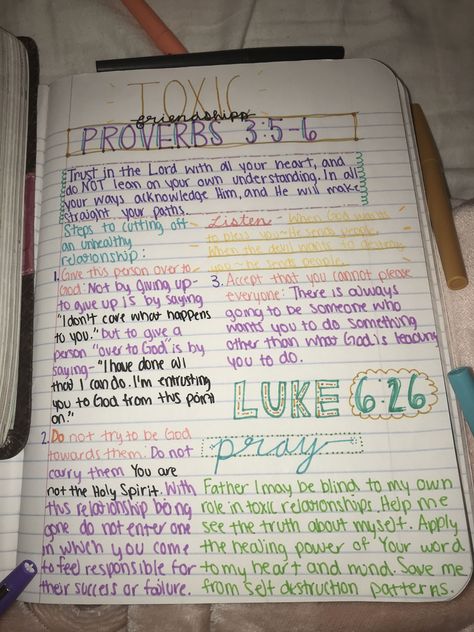 TOXIC
friendships
PROVERBS 3:5-6
Trust in the Lord with all your heart, and
do NOT lean on your own understanding. In all
your ways acknowledge Him, and He will make
straight your paths.
Steps to cutting off
an unhealthy
relationship:
1. Give this person over to
God: Not by giving up-
to give up is by saying
"I don't care what happens
to you." but to give a
person "over to God" is by
saying- "I have done all
that I can do. I'm entrusting
you to God from this point
on."
2. Do not try to be God
towards them: Do not
carry them You are
not the Holy Spirit. With
this relationship being
gone do not enter one
in which you come
to feel responsible for
their success or failure.
Listen - When God wants
to bless you - He sends people.
When the devil wants to destroy
you - he sends people.
3. Accept that you cannot please
everyone: There is always
going to be someone who
wants you to do something
other than what God is leading
you to do.
LUKE 6:26
pray
Father I may be blind to my own
role in toxic relationships. Help me
see the truth about myself. Apply
the healing power of Your word
to my heart and mind. Save me
from self destruction patterns.